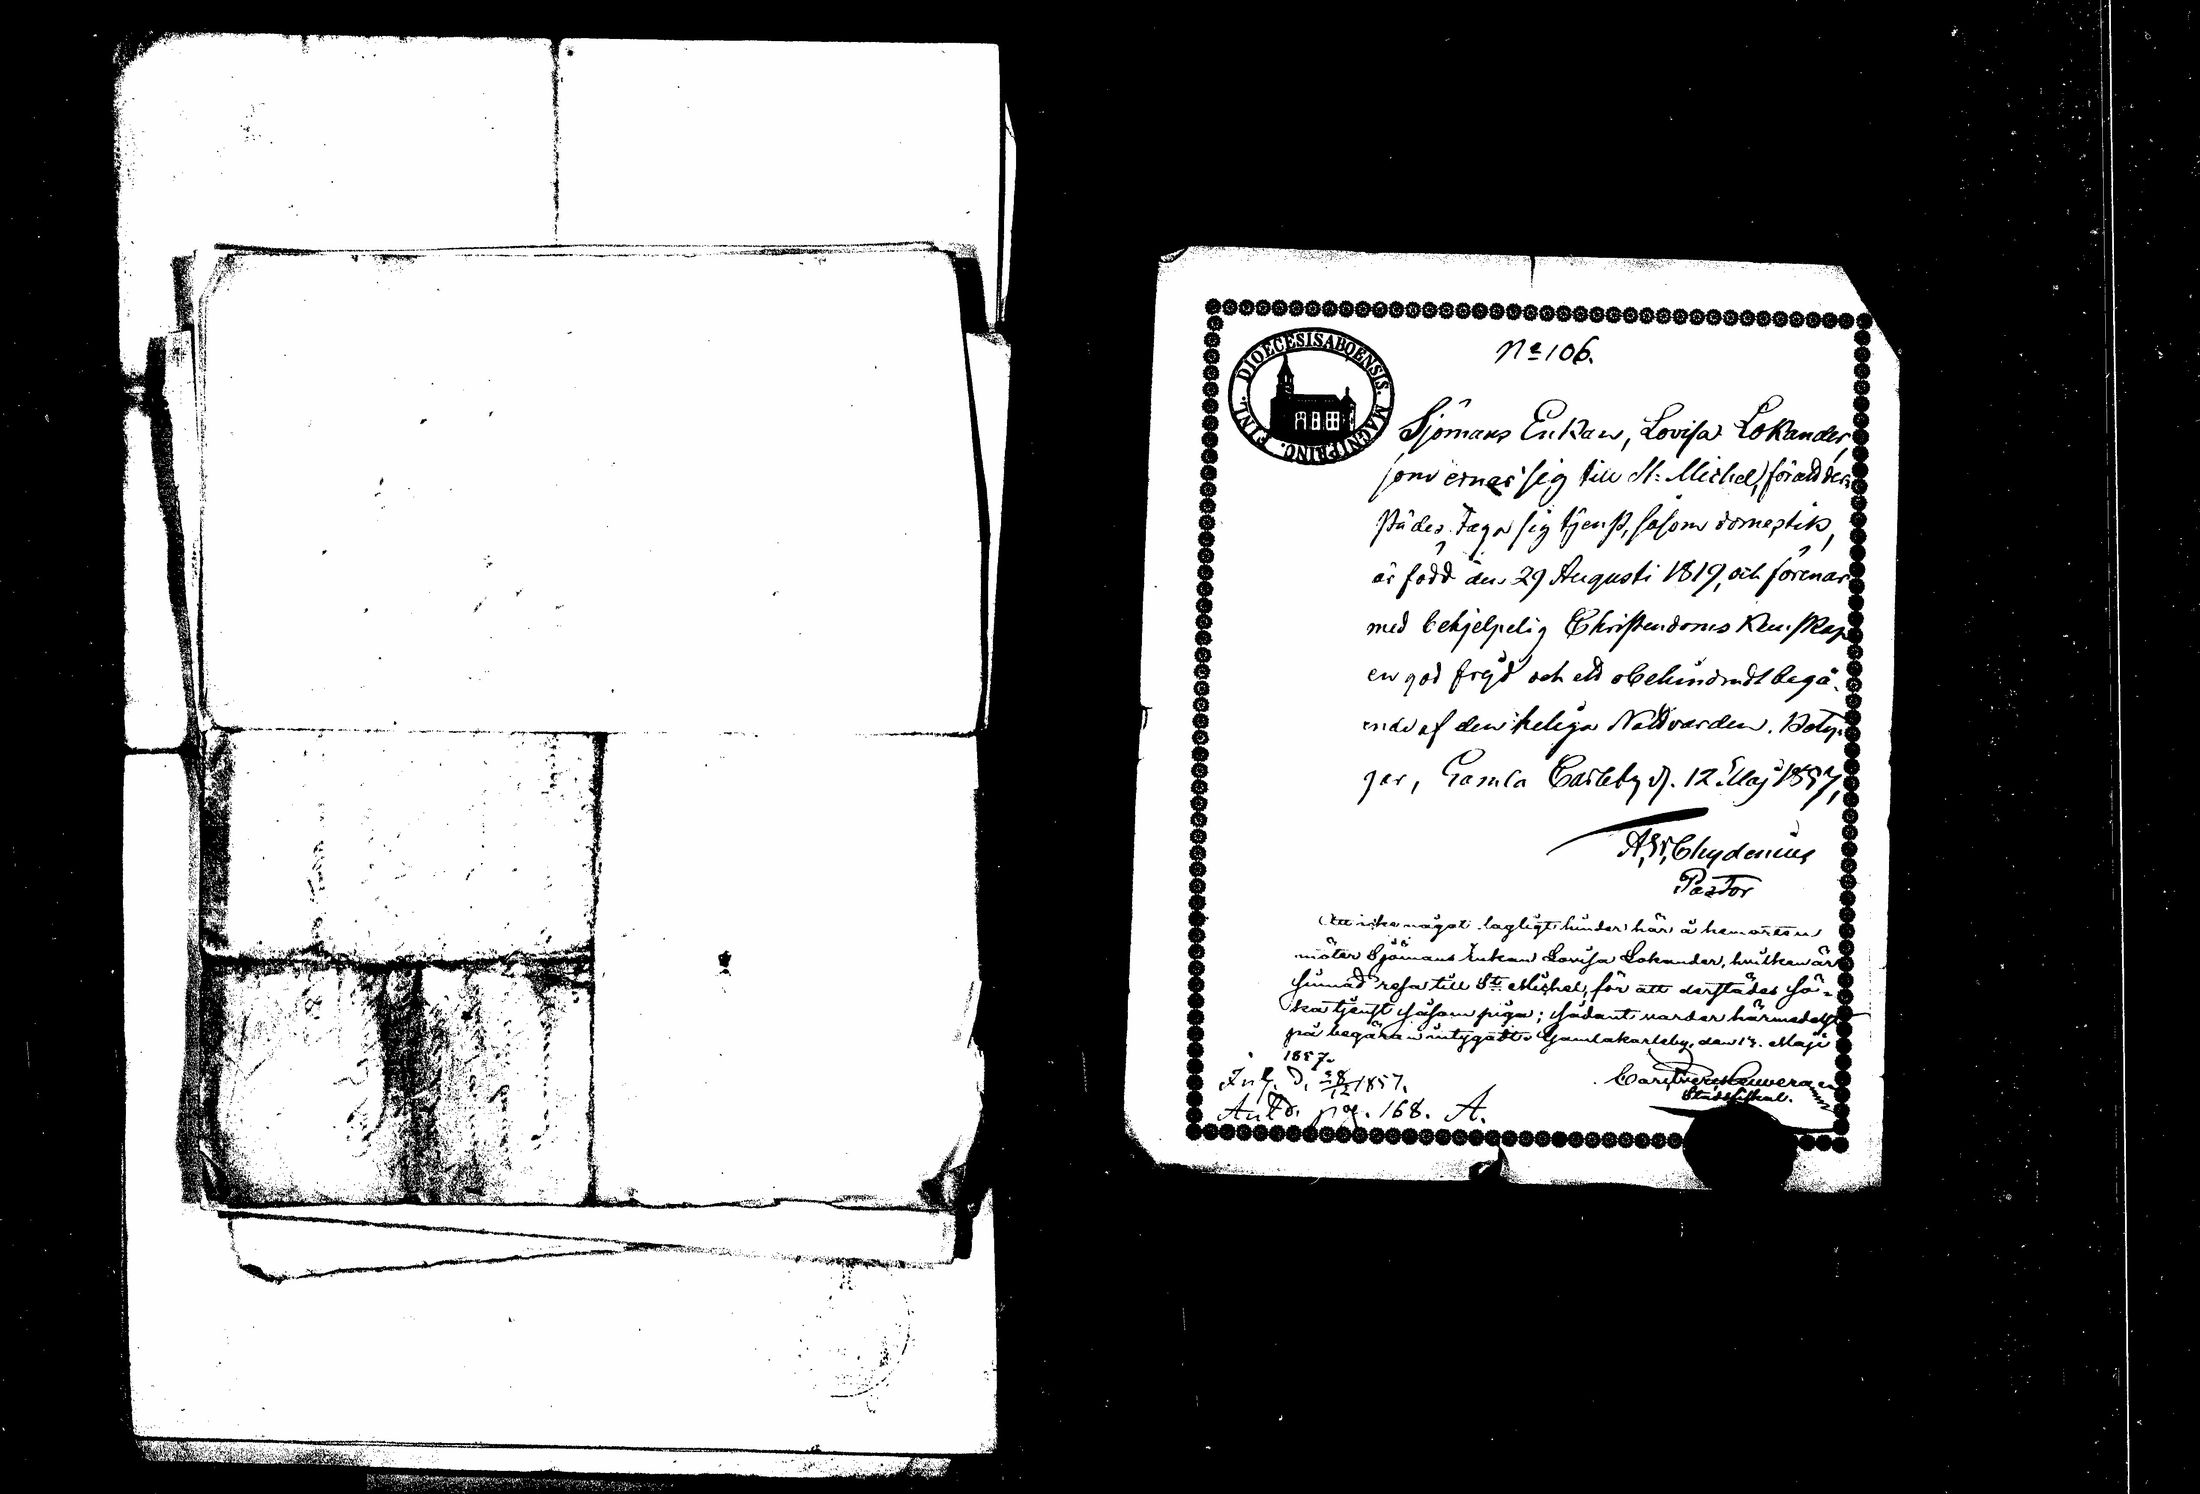 DIOECESIS ABOENSIS. MAGNI PRINC. FINL.
No 106.
Sjömans Enkan, Lovisa Lokander,
som ernar sig till St. Michel, för att der-
städes taga sig tjenst, såsom domestik,
är född den 29 Augusti 1819, och förenar
med behjelpelig Christendoms Kunskap
en god frejd och ett obehindradt begå-
ende af den heliga Nattvarden. Bety-
gar, Gamla Carleby d. 12 Maj 1857,
Chydenius
Pastor
Att icke något lagligt hinder här å hemorten
möter Sjömans Enkan Lovisa Lokander, hvilken är
sinnad resa till St. Michel, för att derstädes sö-
ka tjenst såsom piga; sådant varder härmedelst
på begäran intygadt. Gamlakarleby, den 13. Maji
1857.
Stadsfiskal.
1857.
Antd. pag. 168. A.